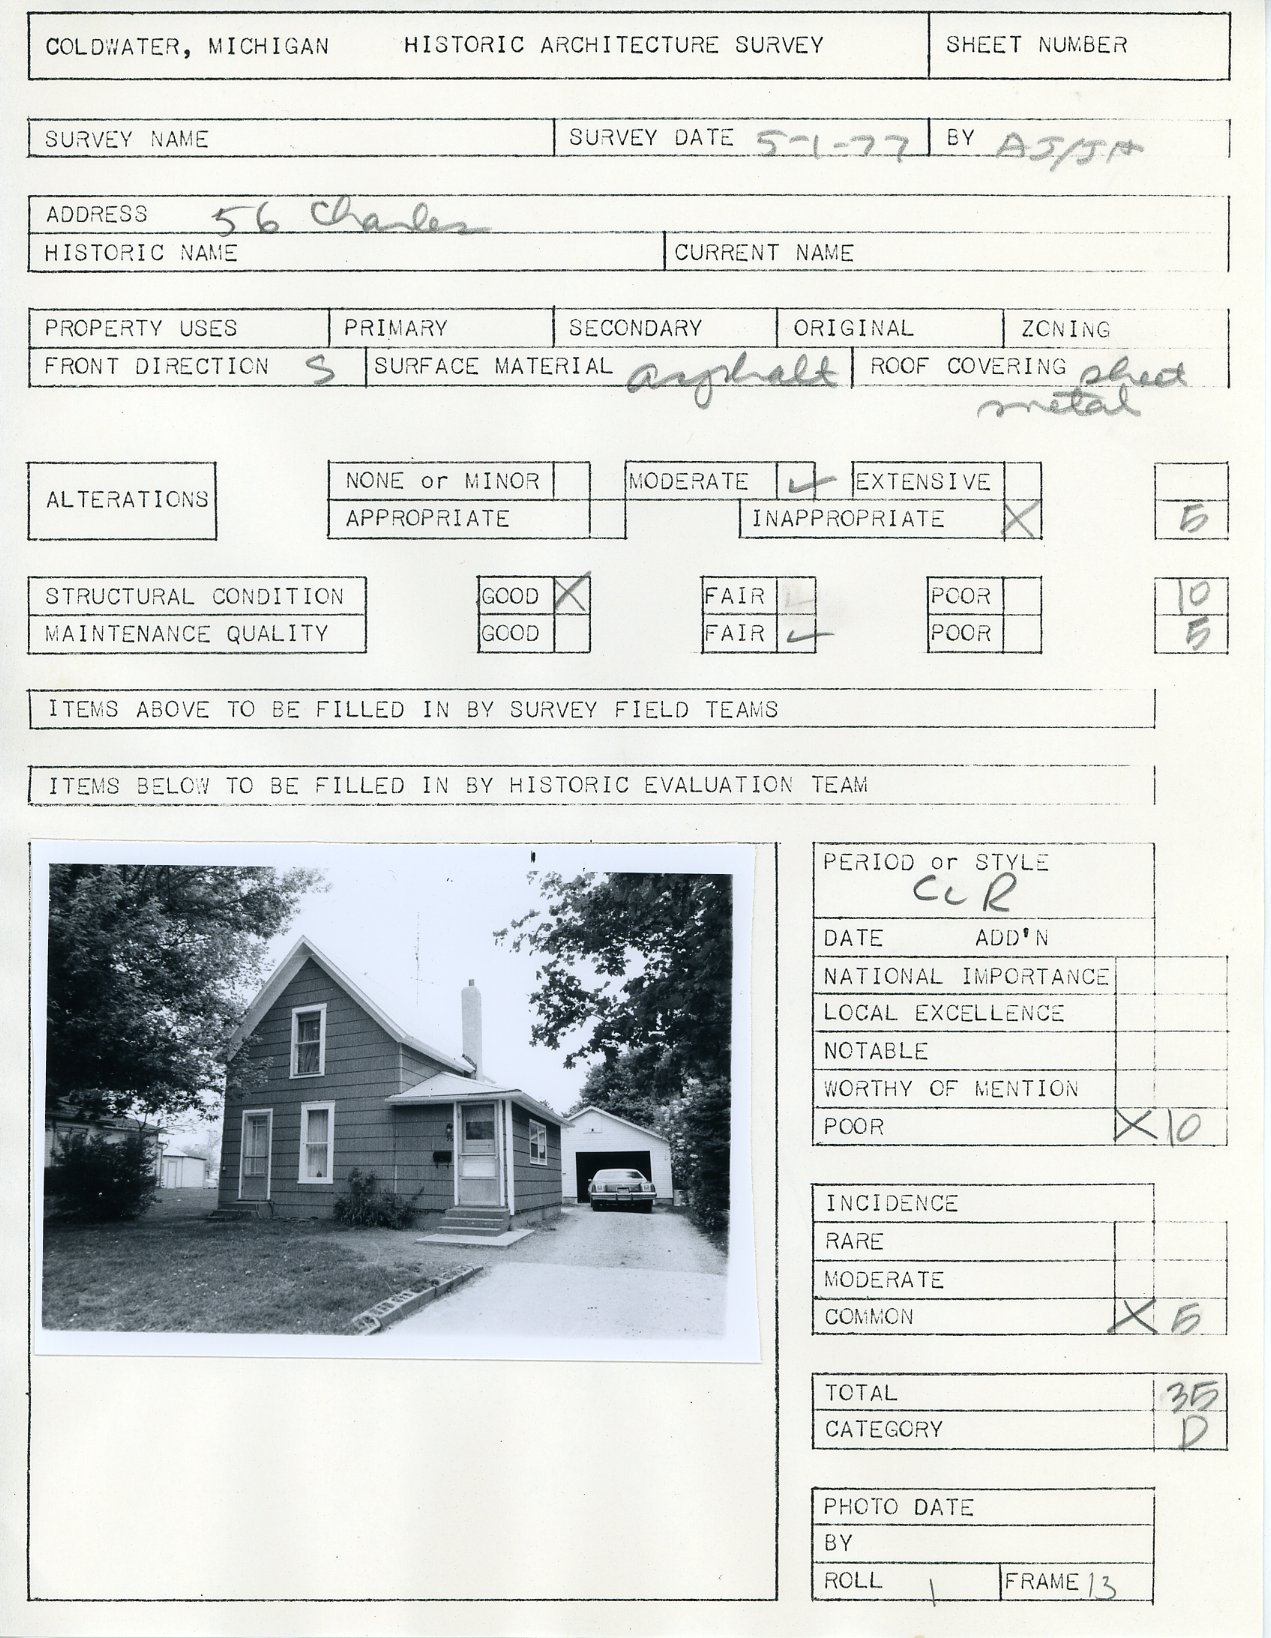 COLDWATER, MICHIGAN HISTORIC ARCHITECTURE SURVEY SHEET NUMBER
SURVEY NAME SURVEY DATE 5-1-77 BY AJ/JA
ADDRESS 56 Charles
HISTORIC NAME CURRENT NAME
PROPERTY USES PRIMARY SECONDARY ORIGINAL ZONING
FRONT DIRECTION S SURFACE MATERIAL asphalt ROOF COVERING sheet
metal
ALTERATIONS NONE or MINOR MODERATE ✓ EXTENSIVE
APPROPRIATE INAPPROPRIATE X 5
STRUCTURAL CONDITION GOOD X FAIR POOR 10
MAINTENANCE QUALITY GOOD FAIR ✓ POOR 5
ITEMS ABOVE TO BE FILLED IN BY SURVEY FIELD TEAMS
ITEMS BELOW TO BE FILLED IN BY HISTORIC EVALUATION TEAM
PERIOD or STYLE
CLR
DATE ADD'N
NATIONAL IMPORTANCE
LOCAL EXCELLENCE
NOTABLE
WORTHY OF MENTION
POOR X 10
INCIDENCE
RARE
MODERATE
COMMON X 5
TOTAL 35
CATEGORY D
PHOTO DATE
BY
ROLL 1 FRAME 13